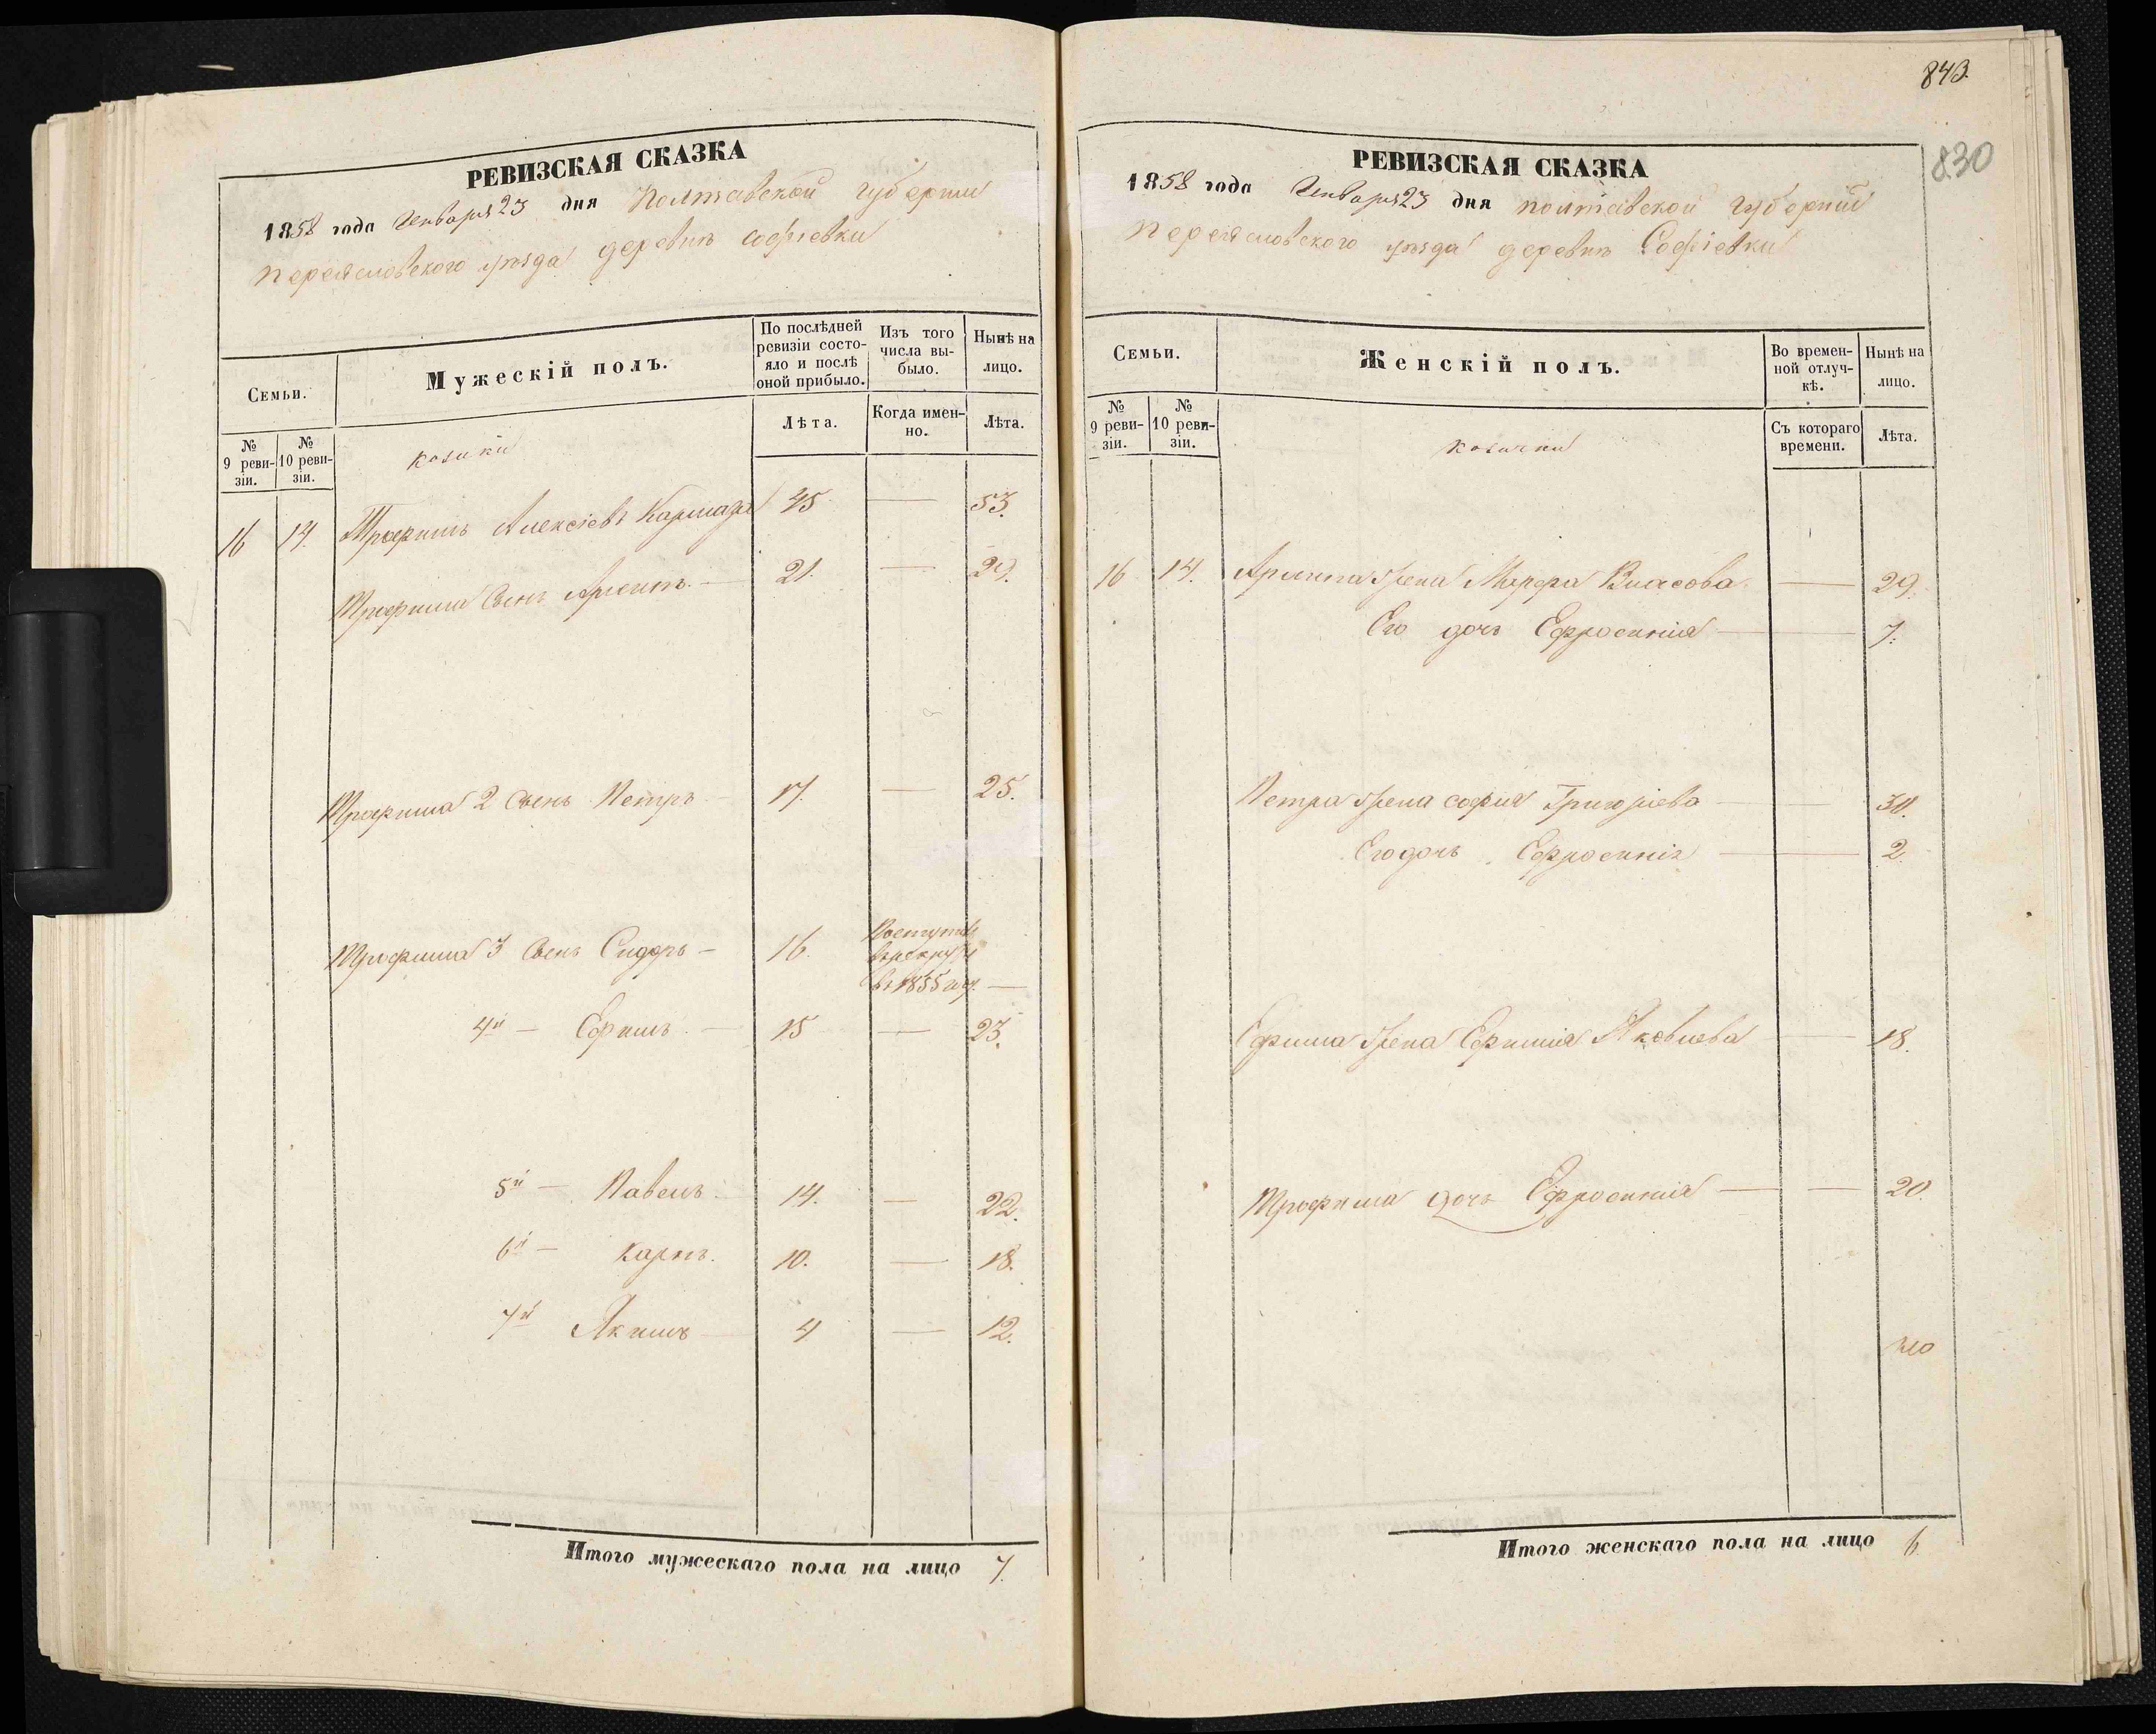 РЕВИЗСКАЯ СКАЗКА
1858 года Генваря 23 дня Полтавской губернии
переясловского уѣзда деревнѣ софіевки
Семьи.
Мужескій полъ.
По послѣдней ревизіи состояло и послѣ оной прибыло.
Изъ того числа выбыло.
Нынѣ на лицо.
№ 9 ревизіи.
№ 10 ревизіи.
козаки
Лѣта.
Когда именно.
Лѣта.
16 14. Трофимъ Алексіевъ 45 — 53.
Трофима Сынъ 21. — 29.
Трофима 2 Сынъ Петръ — 17. — 25.
Трофима 3 Сынъ Сидоръ — 16.
Поступ. въ рекруты въ 1855 год. —
4й — Ефимъ — 15 — 23.
5й — Павелъ — 14. — 22.
6й — Карпъ. 10. — 18.
7й Якимъ — 4 — 12.
Итого мужескаго пола на лицо 7.
843.
830
РЕВИЗСКАЯ СКАЗКА
1858 года Генваря 23 дня полтавской губерній
переясловского уѣзда деревнѣ Софіевки
Семьи.
Женскій полъ.
Во временной отлучкѣ.
Нынѣ на лицо.
№ 9 ревизіи.
№ 10 ревизіи.
козачки
Съ котораго времени.
Лѣта.
16 14. жена Марфа Власова — 29.
Его дочь Ефросинія — 7.
Петра жена софия Григоріева — 30.
Его дочь Ефросинія — 2.
Ефима жена Ефимия Яковлева — 18.
Трофима дочь Ефросинія — — 20.
Итого женскаго пола на лицо 6.